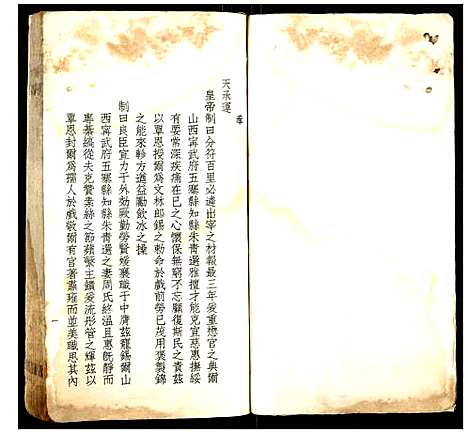 奉
天承運
皇帝制曰分符百里必遴出宰之材報最三年爰重懋官之典爾
山西寧武府五寨縣知縣朱青選雅擅才能克宣慈惠撫綏
有要常深疾痛在已之心懷保無窮不忘顧復斯民之責茲
以覃恩授爾為文林郎錫之勅命於戲前勞已茂用褒製錦
之能來軫方遒益勵飲冰之操
制曰良臣宜力于外効厥勤勞賢媛襄職于中膺茲龍錫爾山
西寧武府五寨縣知縣朱青選之妻周氏終溫且惠既靜而
專綦縞從夫克贊素絲之節蘋蘩主饋爰流彤管之輝茲以
覃恩封爾為孺人於戲敬爾有官著肅雝而並美職思其內
一